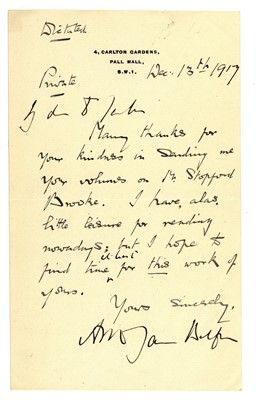 Dictated
4, CARLTON GARDENS,
PALL MALL,
S.W.1.
Private
Dec: 13th 1917
My d
Many thanks for
your kindness in sending me
your volumes on Mr. Stopford
Brooke. I have, alas,
little leisure for reading
nowadays; but I hope to
find time at least for this work of
yours.
Yours sincerely,
Arthur James Balfour